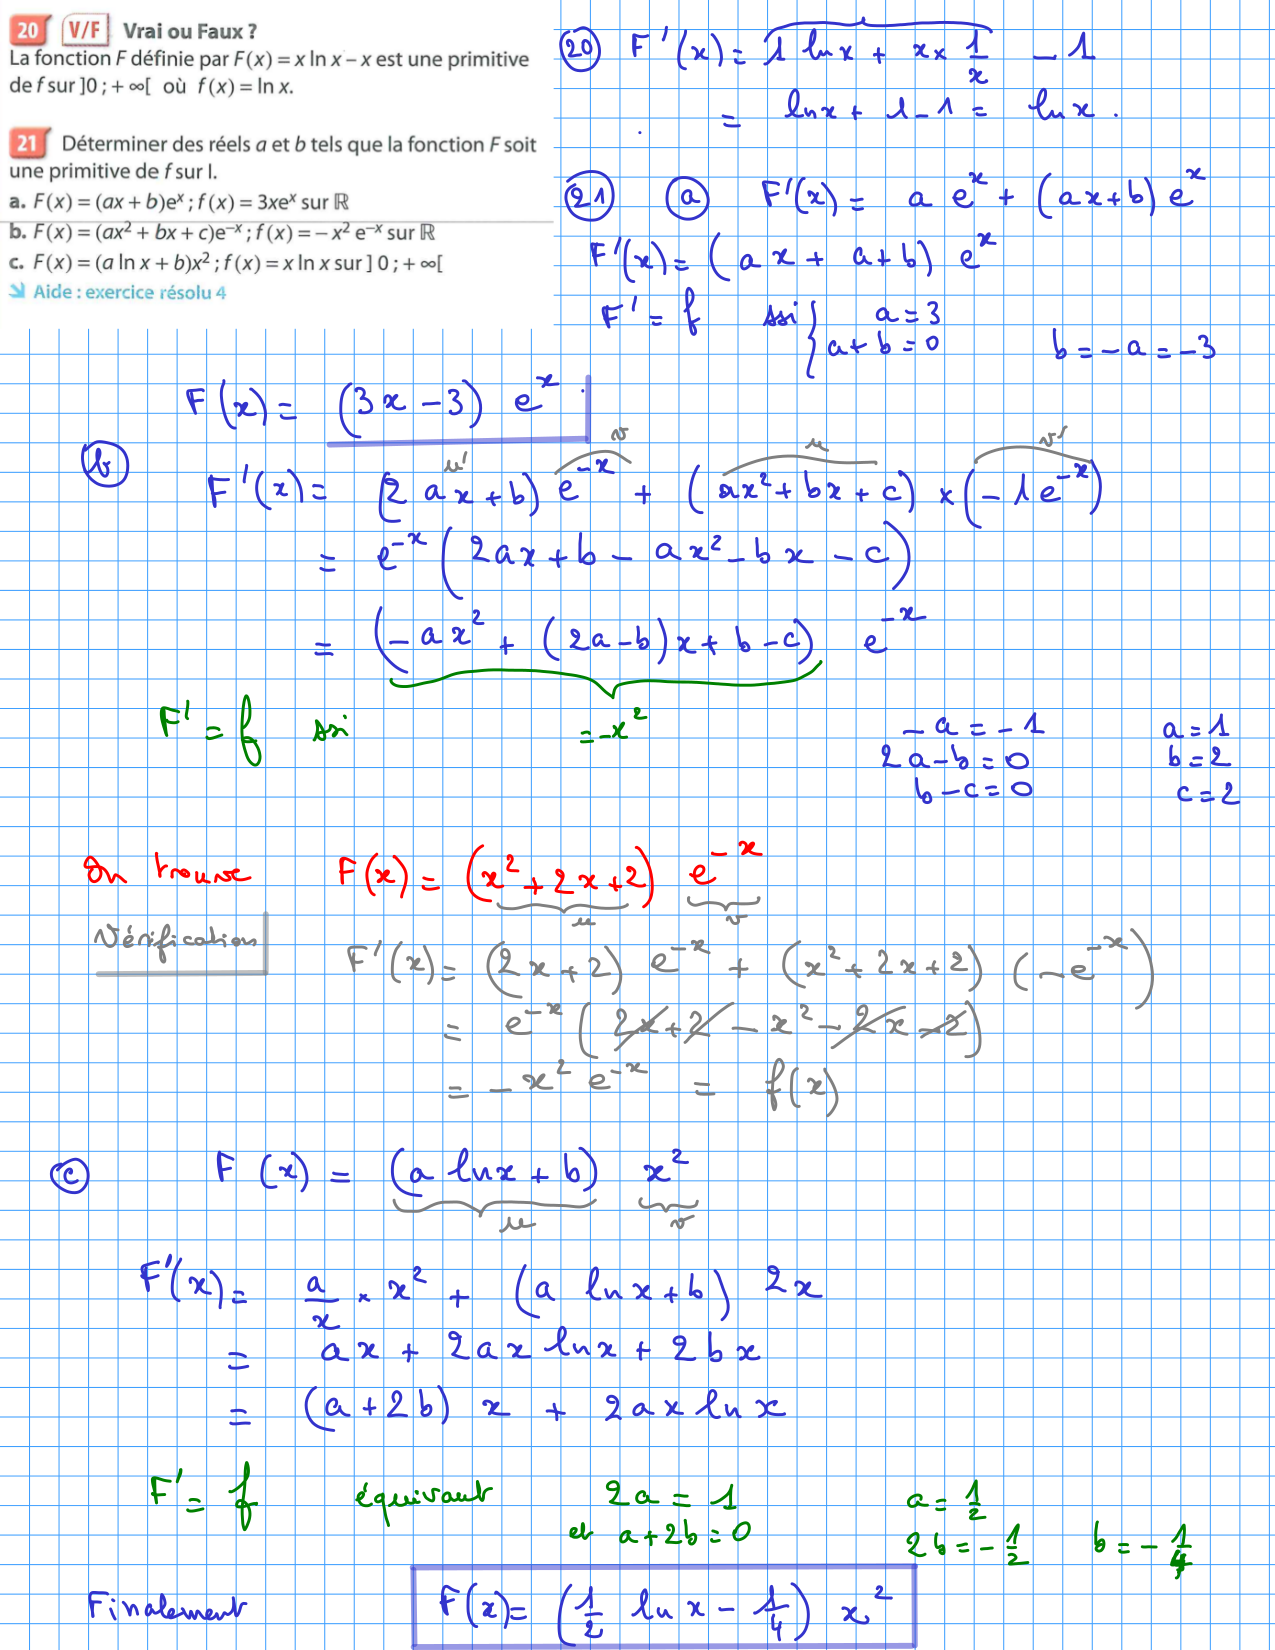 20 V/F Vrai ou Faux ?
La fonction F définie par F(x) = x ln x – x est une primitive
de f sur ]0 ; + ∞[ où f(x) = ln x.
21 Déterminer des réels a et b tels que la fonction F soit
une primitive de f sur I.
a. F(x) = (ax + b)eˣ ; f(x) = 3xeˣ sur ℝ
b. F(x) = (ax² + bx + c)e⁻ˣ ; f(x) = – x² e⁻ˣ sur ℝ
c. F(x) = (a ln x + b)x² ; f(x) = x ln x sur ] 0 ; + ∞[
Aide : exercice résolu 4
20 F'(x) = 1 ln x + x × 1/x – 1
= ln x + 1 – 1 = ln x .
21 a F'(x) = a eˣ + (ax + b) eˣ
F'(x) = (a x + a + b) eˣ
F' = f ssi { a = 3
a + b = 0 b = – a = – 3
F(x) = (3x – 3) eˣ
u' v u v'
b F'(x) = (2 a x + b) e⁻ˣ + (ax² + bx + c) × (– 1 e⁻ˣ)
= e⁻ˣ (2ax + b – ax² – bx – c)
= (– a x² + (2a – b) x + b – c) e⁻ˣ
F' = f ssi = – x² – a = – 1 a = 1
2a – b = 0 b = 2
b – c = 0 c = 2
On trouve F(x) = (x² + 2x + 2) e⁻ˣ
u v
Vérification F'(x) = (2x + 2) e⁻ˣ + (x² + 2x + 2) (– e⁻ˣ)
= e⁻ˣ (2x + 2 – x² – 2x – 2)
= – x² e⁻ˣ = f(x)
c F(x) = (a ln x + b) x²
u v
F'(x) = a/x × x² + (a ln x + b) 2x
= ax + 2ax ln x + 2bx
= (a + 2b) x + 2ax ln x
F' = f équivaut 2a = 1 a = 1/2
et a + 2b = 0 2b = – 1/2 b = – 1/4
Finalement F(x) = (1/2 ln x – 1/4) x²